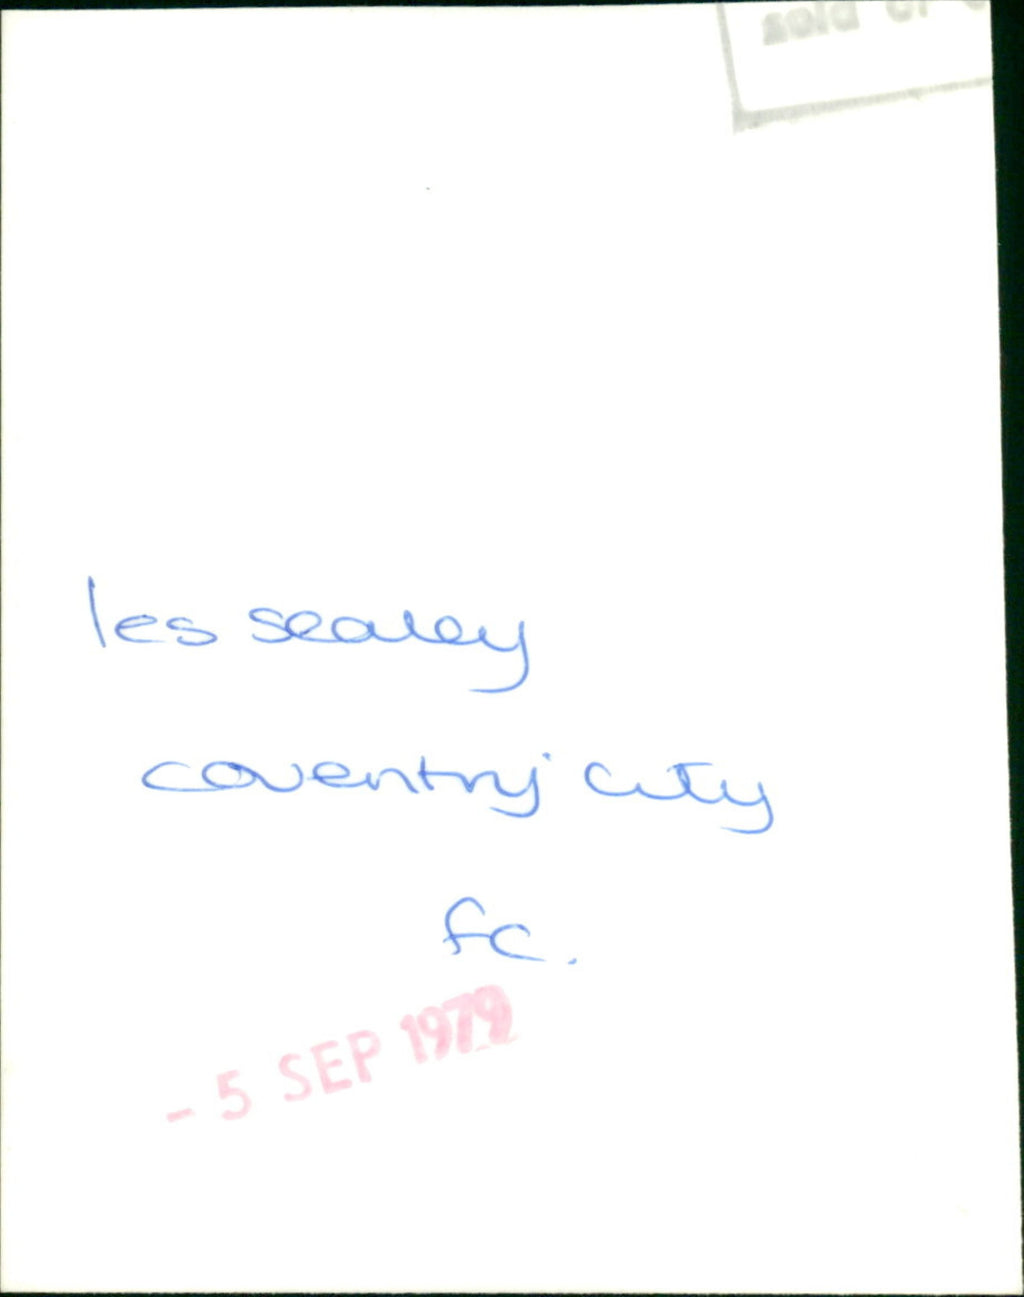 sold or
les sealey
coventry city
fc.
- 5 SEP 1979